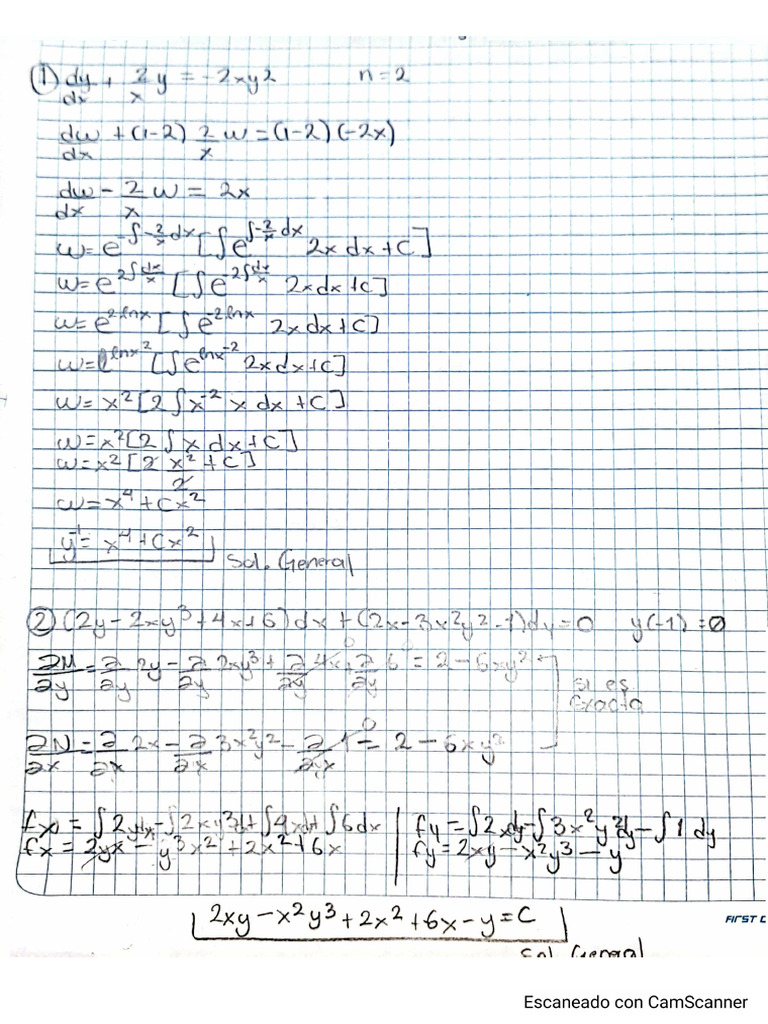 ① dy/dx + 2/x y = -2xy² n=2
dw/dx + (1-2) 2/x w = (1-2)(-2x)
dw/dx - 2/x w = 2x
w = e^-∫-2/x dx [∫e^∫-2/x dx 2x dx + C]
w = e^2∫dx/x [∫e^-2∫dx/x 2x dx + C]
w = e^2lnx [∫e^-2lnx 2x dx + C]
w = e^lnx² [∫e^lnx^-2 2x dx + C]
w = x² [2∫x^-2 x dx + C]
w = x² [2∫x dx + C]
w = x² [2 x²/2 + C]
w = x⁴ + Cx²
y^-1 = x⁴ + Cx² Sol. General
② (2y - 2xy³ + 4x + 6)dx + (2x - 3x²y² - 1)dy = 0 y(-1) = 0
∂M/∂y = ∂/∂y 2y - ∂/∂y 2xy³ + ∂/∂y 4x + ∂/∂y 6 = 2 - 6xy²
si es
Exacta
∂N/∂x = ∂/∂x 2x - ∂/∂x 3x²y² - ∂/∂x 1 = 2 - 6xy²
fx = ∫2ydx - ∫2xy³dx + ∫4xdx + ∫6dx
fx = 2yx - y³x² + 2x² + 6x
fy = ∫2xdy - ∫3x²y²dy - ∫1 dy
fy = 2xy - x²y³ - y
2xy - x²y³ + 2x² + 6x - y = C
Sol. General
FIRST C
Escaneado con CamScanner